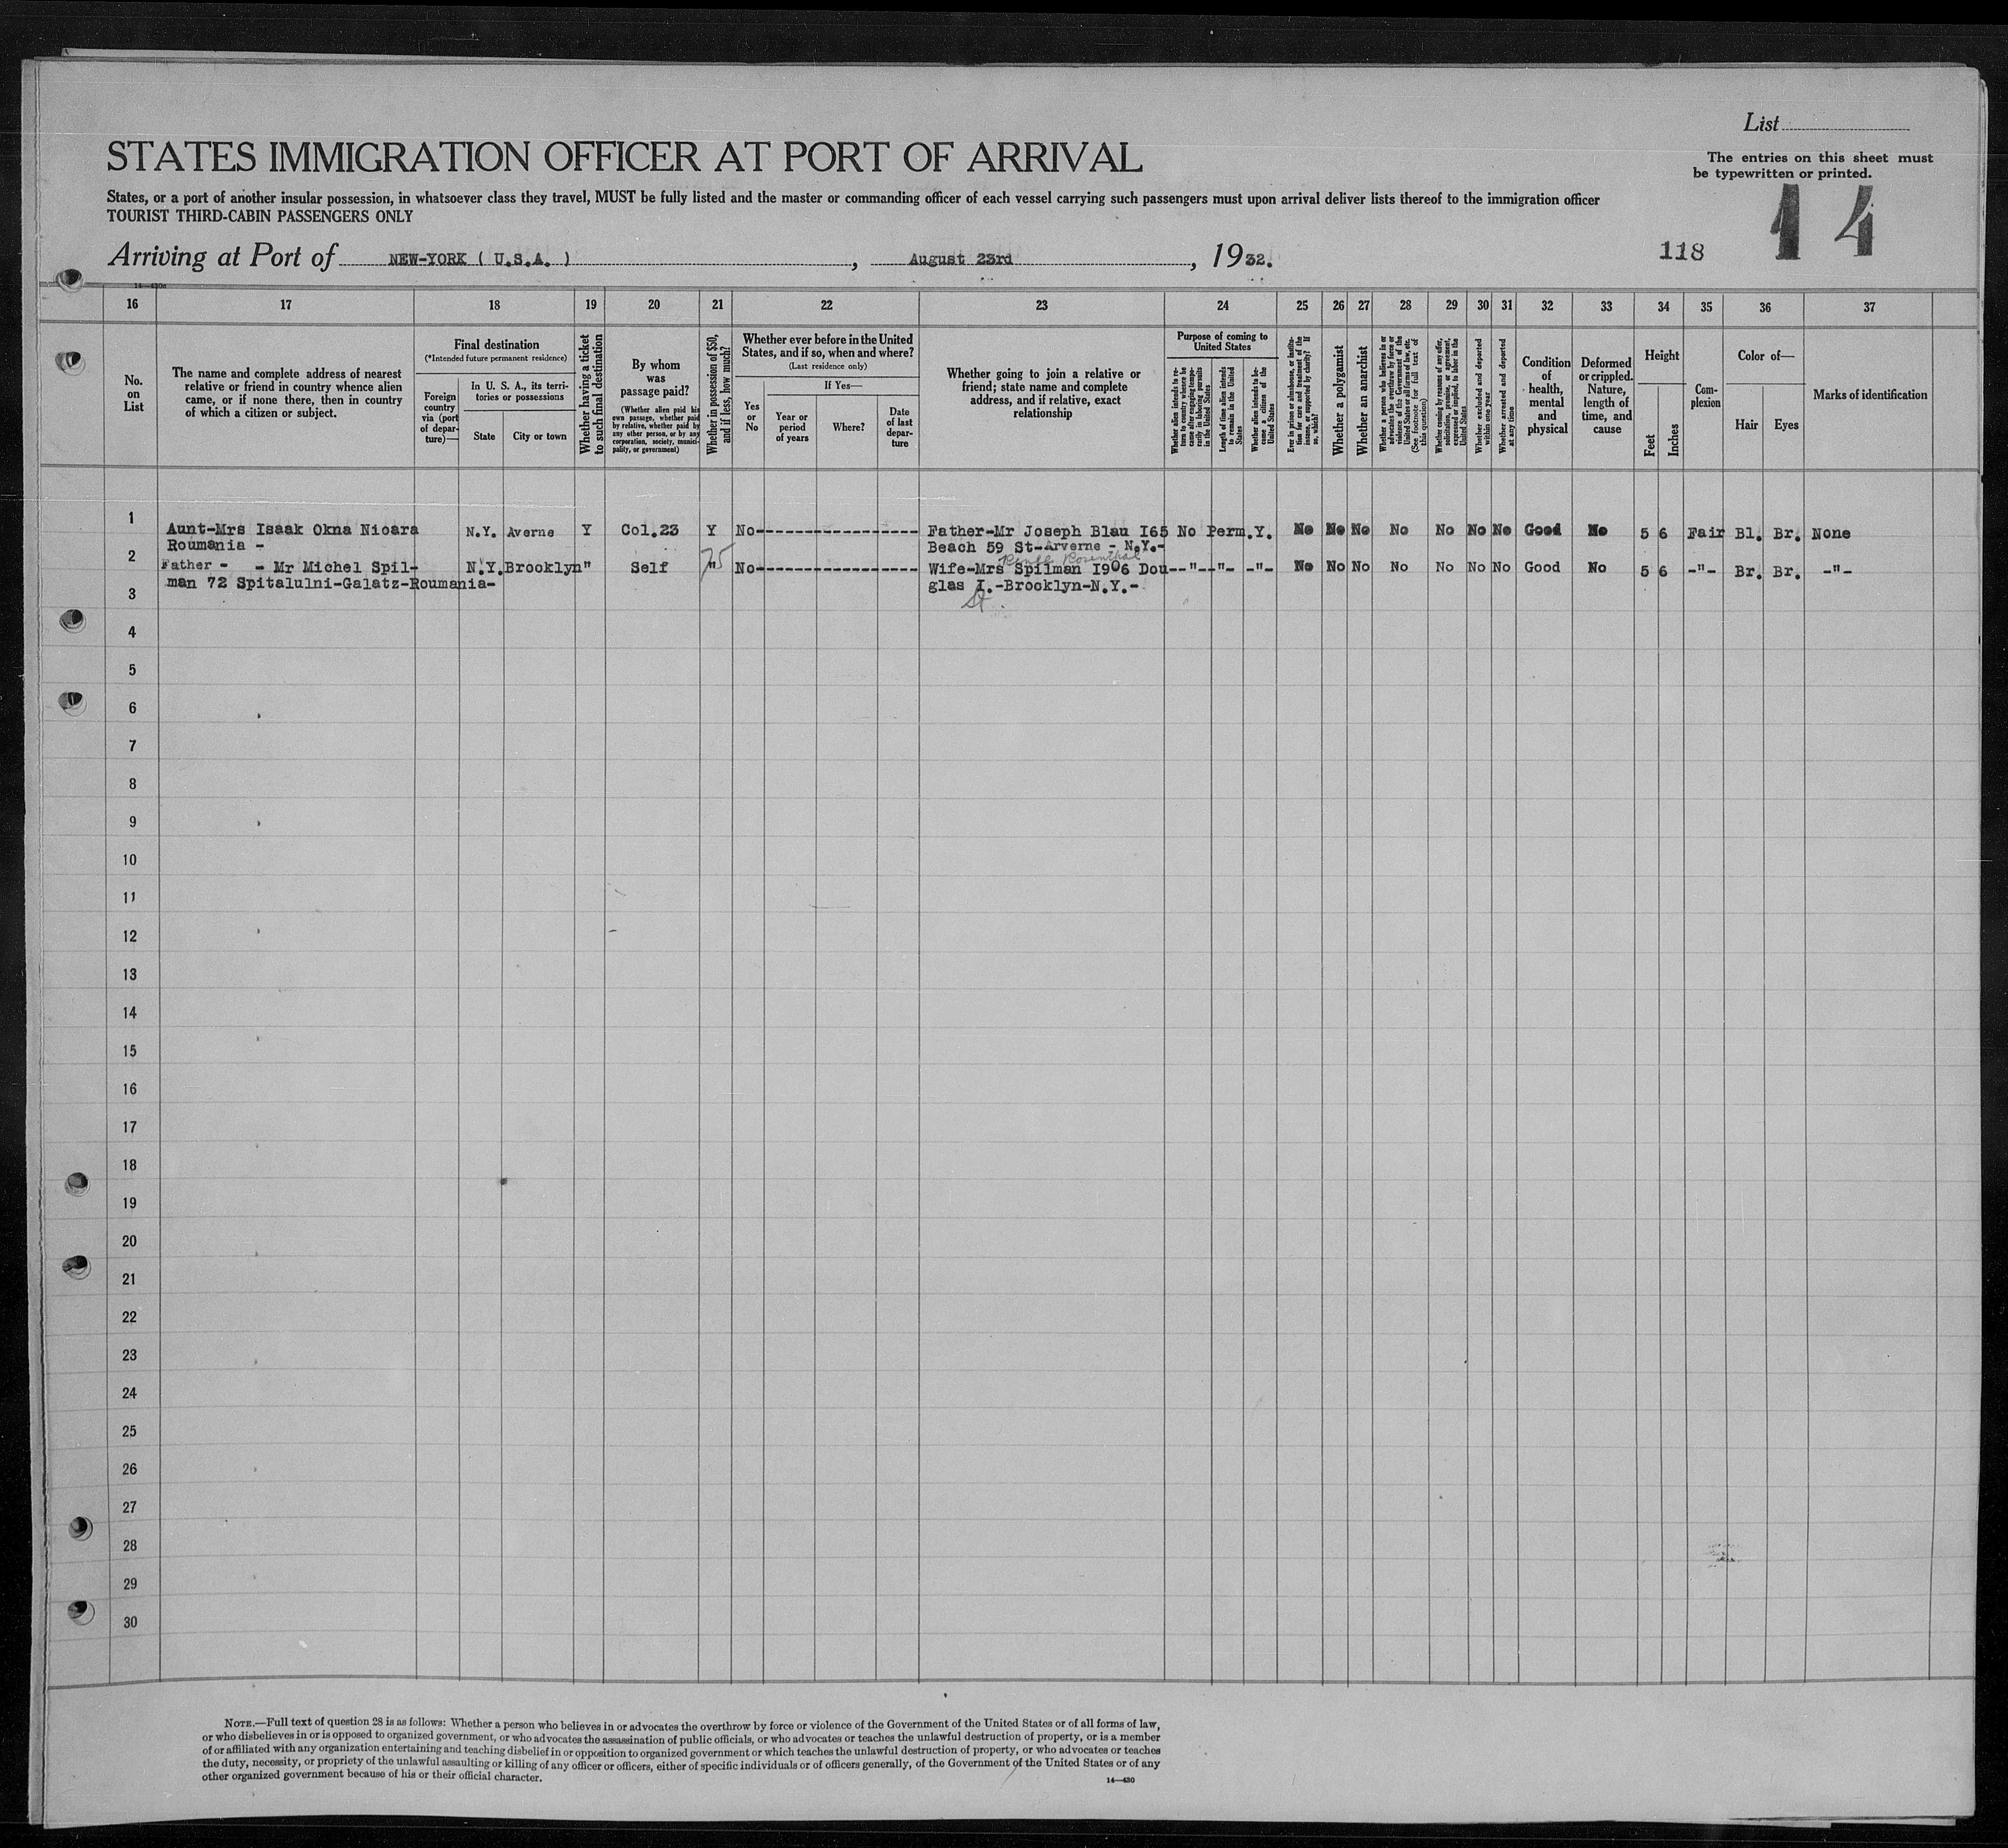 List
STATES IMMIGRATION OFFICER AT PORT OF ARRIVAL
The entries on this sheet must
be typewritten or printed.
States, or a port of another insular possession, in whatsoever class they travel, MUST be fully listed and the master or commanding officer of each vessel carrying such passengers must upon arrival deliver lists thereof to the immigration officer
TOURIST THIRD-CABIN PASSENGERS ONLY
118 14
Arriving at Port of NEW-YORK ( U.S.A. ), August 23rd, 1932.
16 17 18 19 20 21 22 23 24 25 26 27 28 29 30 31 32 33 34 35 36 37
No. on List
The name and complete address of nearest
relative or friend in country whence alien
came, or if none there, then in country
of which a citizen or subject.
Final destination
(*Intended future permanent residence)
Foreign country via (port of departure)—
In U. S. A., its territories or possessions
State City or town
Whether having a ticket to such final destination
By whom was passage paid?
(Whether alien paid his own passage, whether paid by relative, whether paid by any other person, or by any corporation, society, municipality, or government)
Whether in possession of $50, and if less, how much?
Whether ever before in the United
States, and if so, when and where?
(Last residence only)
Yes or No
If Yes—
Year or period of years
Where?
Date of last departure
Whether going to join a relative or
friend; state name and complete
address, and if relative, exact
relationship
Purpose of coming to United States
Whether alien intends to return to country whence he came after engaging temporarily in laboring pursuits in the United States
Length of time alien intends to remain in the United States
Whether alien intends to become a citizen of the United States
Ever in prison or almshouse, or institution for care and treatment of the insane, or supported by charity? If so, which?
Whether a polygamist
Whether an anarchist
Whether a person who believes in or advocates the overthrow by force or violence of the Government of the United States or all forms of law, etc. (See footnote for full text of this question)
Whether coming by reasons of any offer, solicitation, promise, or agreement, expressed or implied, to labor in the United States
Whether excluded and deported within one year
Whether arrested and deported at any time
Condition of health, mental and physical
Deformed or crippled. Nature, length of time, and cause
Height
Feet Inches
Complexion
Color of—
Hair Eyes
Marks of identification
1 Aunt-Mrs Isaak Okna Nioara N.Y. Averne Y Col.23 Y No Father-Mr Joseph Blau I65 No Perm.Y. No No No No No No No Good No 5 6 Fair Bl. Br. None
Roumania - Beach 59 St-Arverne - N.Y.-
Rosenthal
2 Father - - Mr Michel Spil- N.Y. Brooklyn " Self " 75 No Wife-Mrs Spilman I906 Dou--"--"- -"- No No No No No No No Good No 5 6 -"- Br. Br. -"-
man 72 Spitalulni-Galatz-Roumania- glas I.-Brooklyn-N.Y.-
St.
3
4
5
6
7
8
9
10
11
12
13
14
15
16
17
18
19
20
21
22
23
24
25
26
27
28
29
30
NOTE.—Full text of question 28 is as follows: Whether a person who believes in or advocates the overthrow by force or violence of the Government of the United States or of all forms of law,
or who disbelieves in or is opposed to organized government, or who advocates the assassination of public officials, or who advocates or teaches the unlawful destruction of property, or is a member
of or affiliated with any organization entertaining and teaching disbelief in or opposition to organized government or which teaches the unlawful destruction of property, or who advocates or teaches
the duty, necessity, or propriety of the unlawful assaulting or killing of any officer or officers, either of specific individuals or of officers generally, of the Government of the United States or of any
other organized government because of his or their official character.
14—430